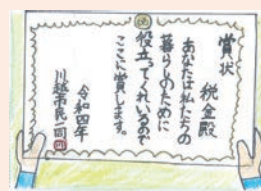 賞状
税金殿
あなたは私たちの
暮らしのために
役立ってくれいるので
ここに賞します。
令和四年
川越市民一同